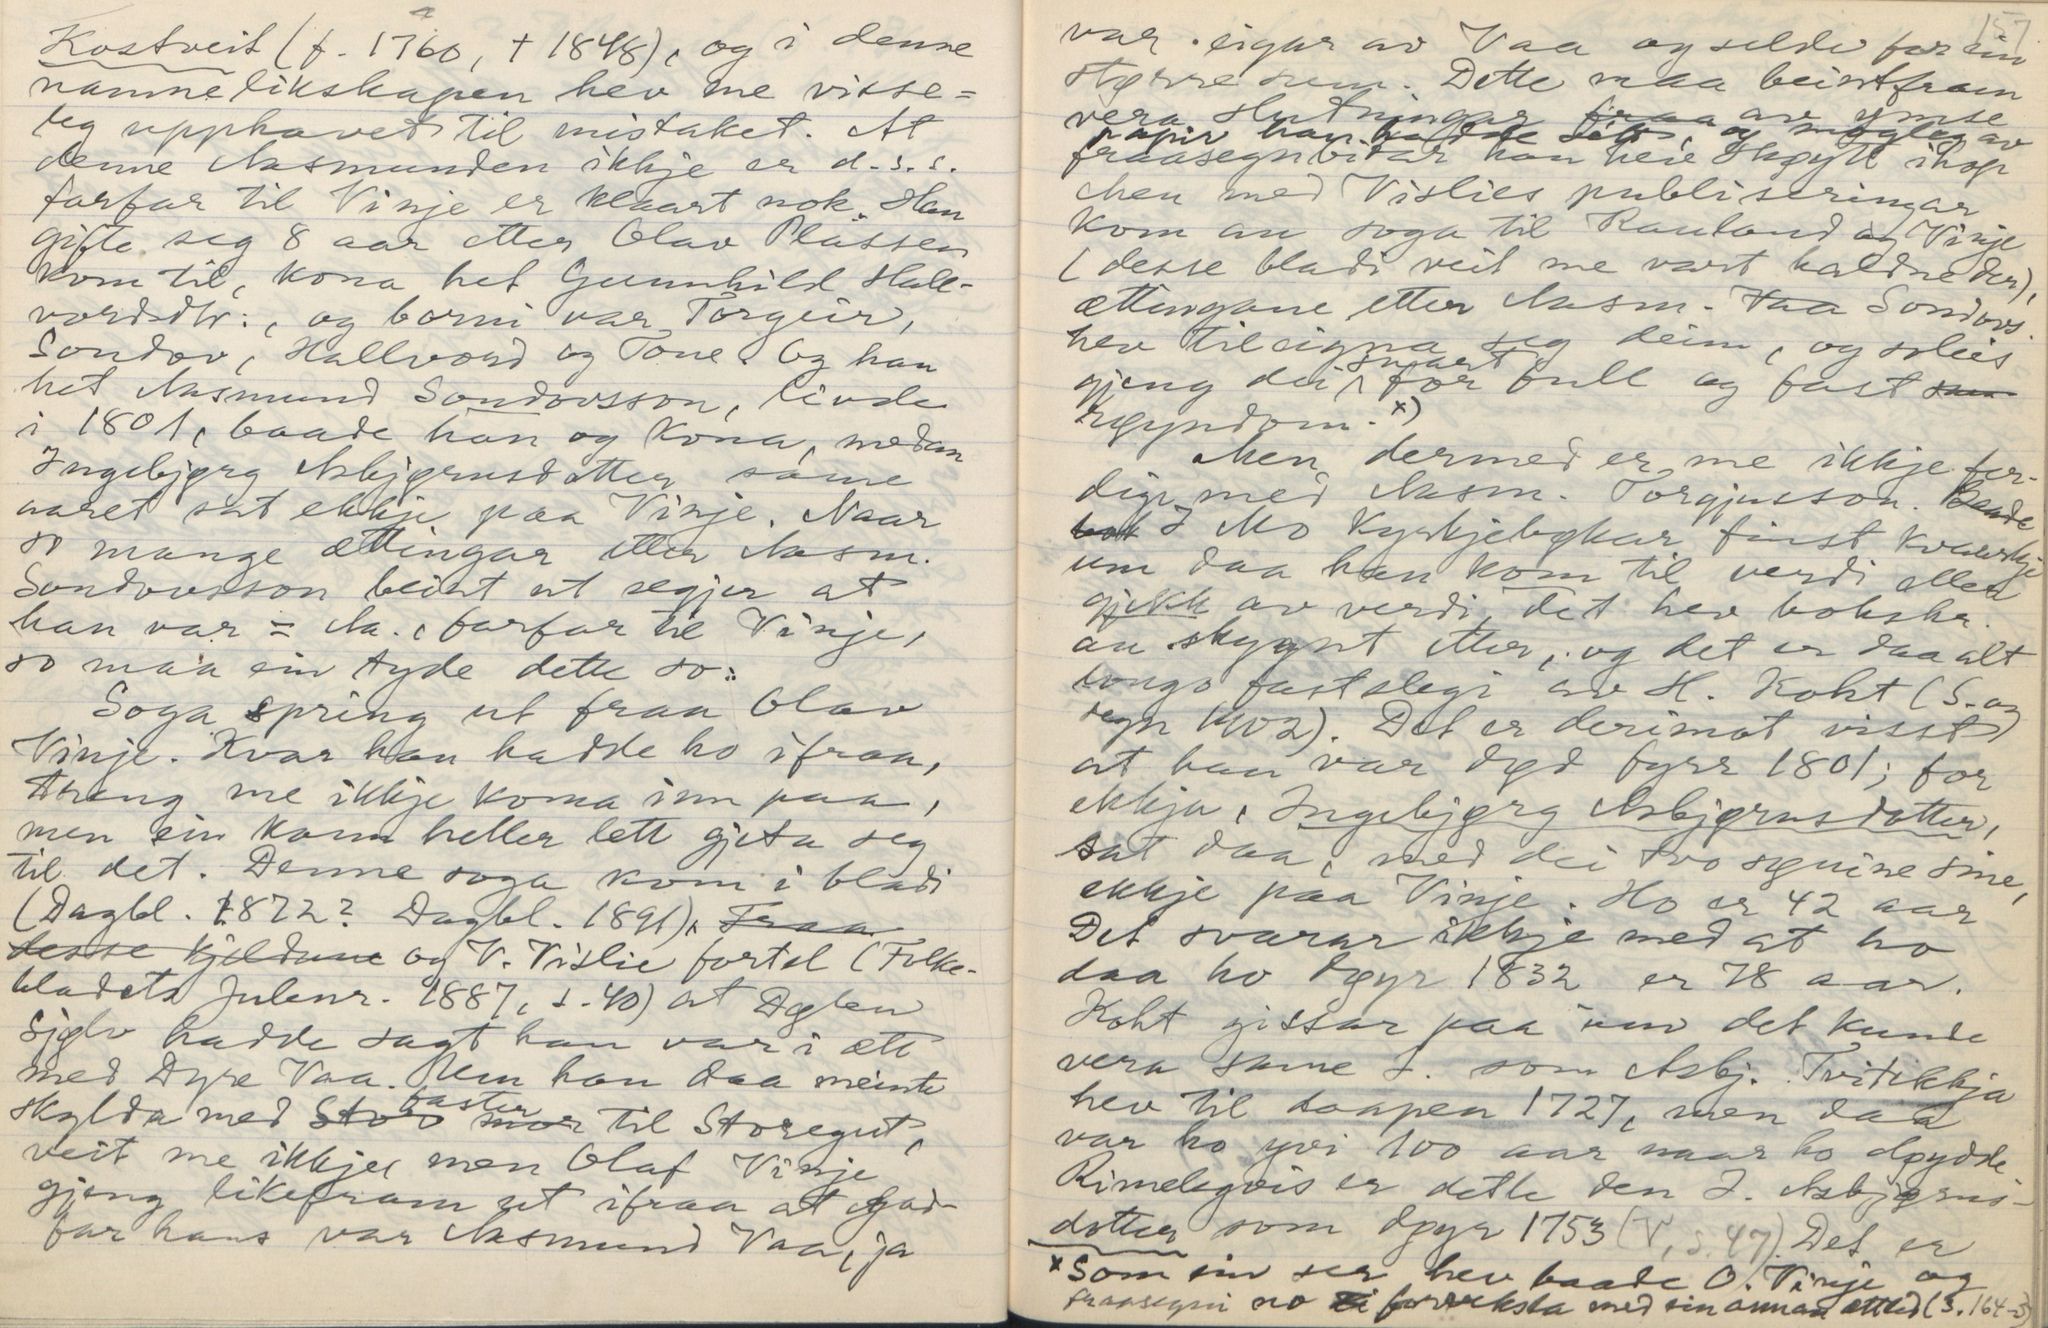 Kostveit (f. 1760, † 1848), og i denne
namnelikskapen hev me visse=
leg upphavet til mistaket. At
denne Aasmunden ikkje er d.s.s.
farfar til Vinje er klaart nok. Han
gifte seg 8 aar etter Olav Plassen
kom til, kona het Gunnhild Hall-
vordsdtr., og borni var Torgeir,
Sondov, Hallvord og Tone. Og han
het Aasmund Sondovsson, livde
i 1801, baade han og kona, medan
Ingebjørg Asbjørnsdotter same
aaret sat ekkje paa Vinje. Naar
so mange ættingar etter Aasm.
Sondovsson beint ut segjer at
han var = Aa., farfar til Vinje,
so maa ein tyde dette so:
Soga spring ut fraa Olav
Vinje. Kvar han hadde ho ifraa,
treng me ikkje koma inn paa,
men ein kann heller lett gjeta seg
til det. Denne soga kom i bladi
(Dagbl. 1872? Dagbl. 1891), Fraa
desse kjeldune og V. Vislie fortel (Folke-
bladets Julenr. 1887, s. 40) at Dølen
sjølv hadde sagt han var i ætt
med Dyre Vaa. Um han daa meinte
skylda med Stov faster mor til Storegut,
veit me ikkje, men Olaf Vinje
gjeng likefram ut ifraa at god-
far hans var Aasmund Vaa, ja
157
var eigar av Vaa og selde for ein
større sum. Dette maa beintfram
vera slutningar fraa av ymse
papir han hadde set, og mogleg av
fraasegnbitar han heve skøytt ihop
Men med Vislies publiseringar
kom au soga til Rauland og Vinje
(desse bladi veit me vart haldne der),
ættingane etter Aasm. Vaa Sondovs.
hev tileigna seg deim, og soleis
gjeng dei snart for full og fast som
røyndom. x)
Men dermed er me ikkje fer-
dige med Aasm. Torgjusson. Baade
bok I Mo kyrkjebøkar finst kvarkje
um daa han kom til verdi eller
gjekk av verdi, det hev bokskr.
au skygnt etter, og det er daa alt
longo fastslegi av H. Koht (S. og
segn 1902). Det er derimot visst
at han var død fyrr 1801; for
ekkja, Ingebjørg Asbjørnsdotter,
sat daa, med dei tvo sønine sine,
ekkje paa Vinje. Ho er 42 aar
Det svarar ikkje med at ho
daa ho døyr 1832 er 78 aar.
Koht gissar paa um det kunde
vera same I. som Asbj. Tvitekkja
hev til daapen 1727, men daa
var ho yvi 100 aar naar ho døydde
Rimelegvis er dette den I. Asbjørns-
dotter som døyr 1753 (V, s. 47). Det er
x Som ein ser hev baade O. Vinje og
fraasegni no forveksla med ein annan ættled (s. 164-5)